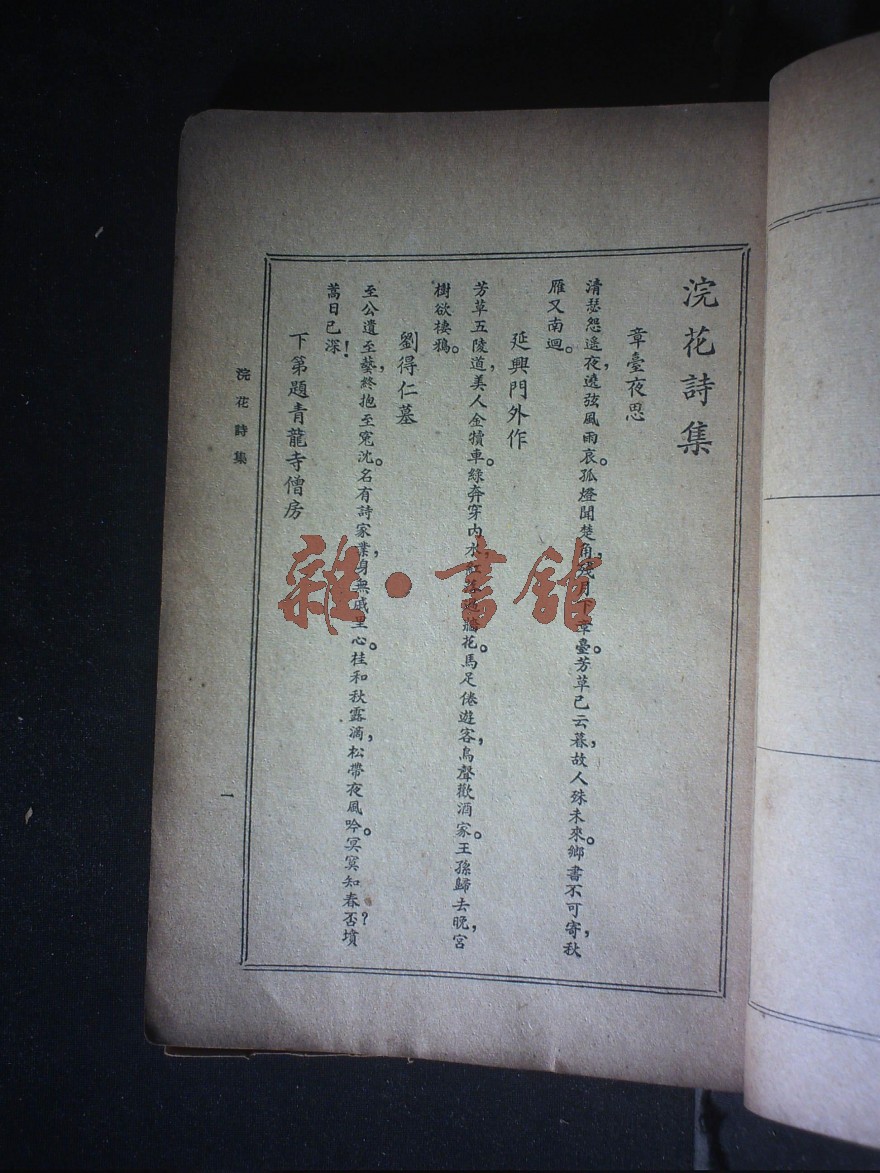 浣花詩集
章臺夜思
清瑟怨遙夜，遶弦風雨哀。孤燈聞楚角，殘月下章臺。芳草已云暮，故人殊未來。鄉書不可寄，秋
雁又南迴。
延興門外作
芳草五陵道，美人金犢車。綠奔穿內水，紅落過牆花。馬足倦遊客，鳥聲歡酒家。王孫歸去晚，宮
樹欲棲鴉。
劉得仁墓
至公遺至藝，終抱至冤沈。名有詩家業，身無戚里心。桂和秋露滴，松帶夜風吟。冥寞知春否？墳
蒿日已深！
下第題青龍寺僧房
浣花詩集
一
雜·書館